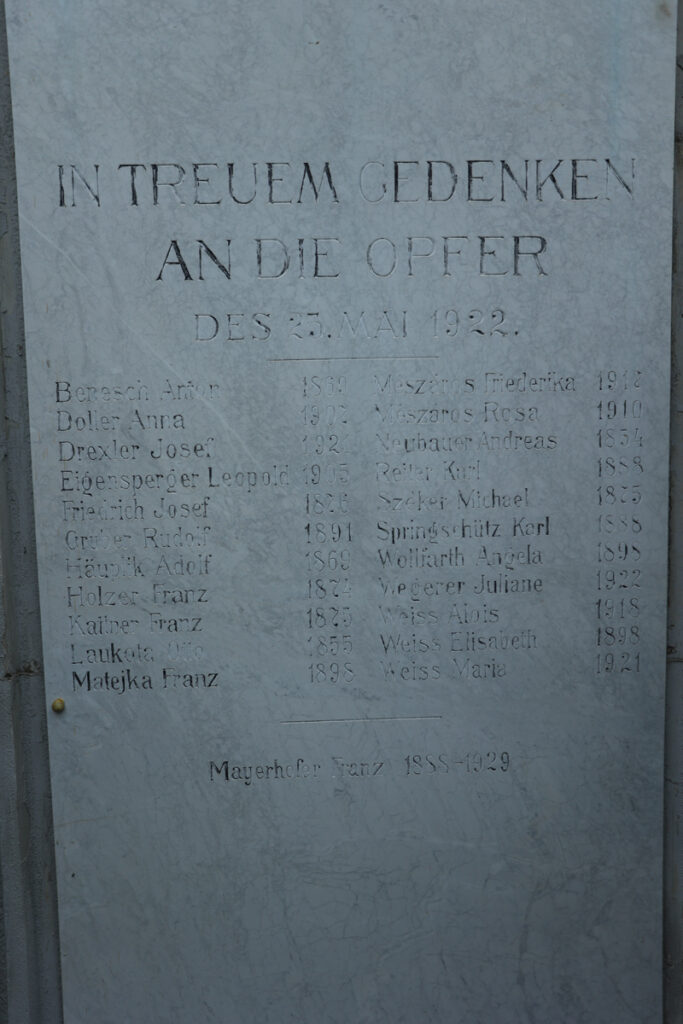 IN TREUEM GEDENKEN
AN DIE OPFER
DES 23. MAI 1922.
Benesch Anton 1869
Doller Anna
Drexler Josef 1921
Eigensperger Leopold 1905
Friedrich Josef
Gruber Rudolf 1891
Adolf 1869
Holzer Franz 1874
Kaitner Franz 1875
Laukota Otto 1855
Matejka Franz 1898
Mészáros Friederika
Mészáros Rosa 1910
Neubauer Andreas 1854
Reiter Karl 1888
Szöker Michael 1875
Springschütz Karl 1888
Wollfarth Angela 1898
Wegerer Juliane 1922
Weiss Alois 1918
Weiss Elisabeth 1898
Weiss Maria 1921
Mayerhofer Franz 1888-1929